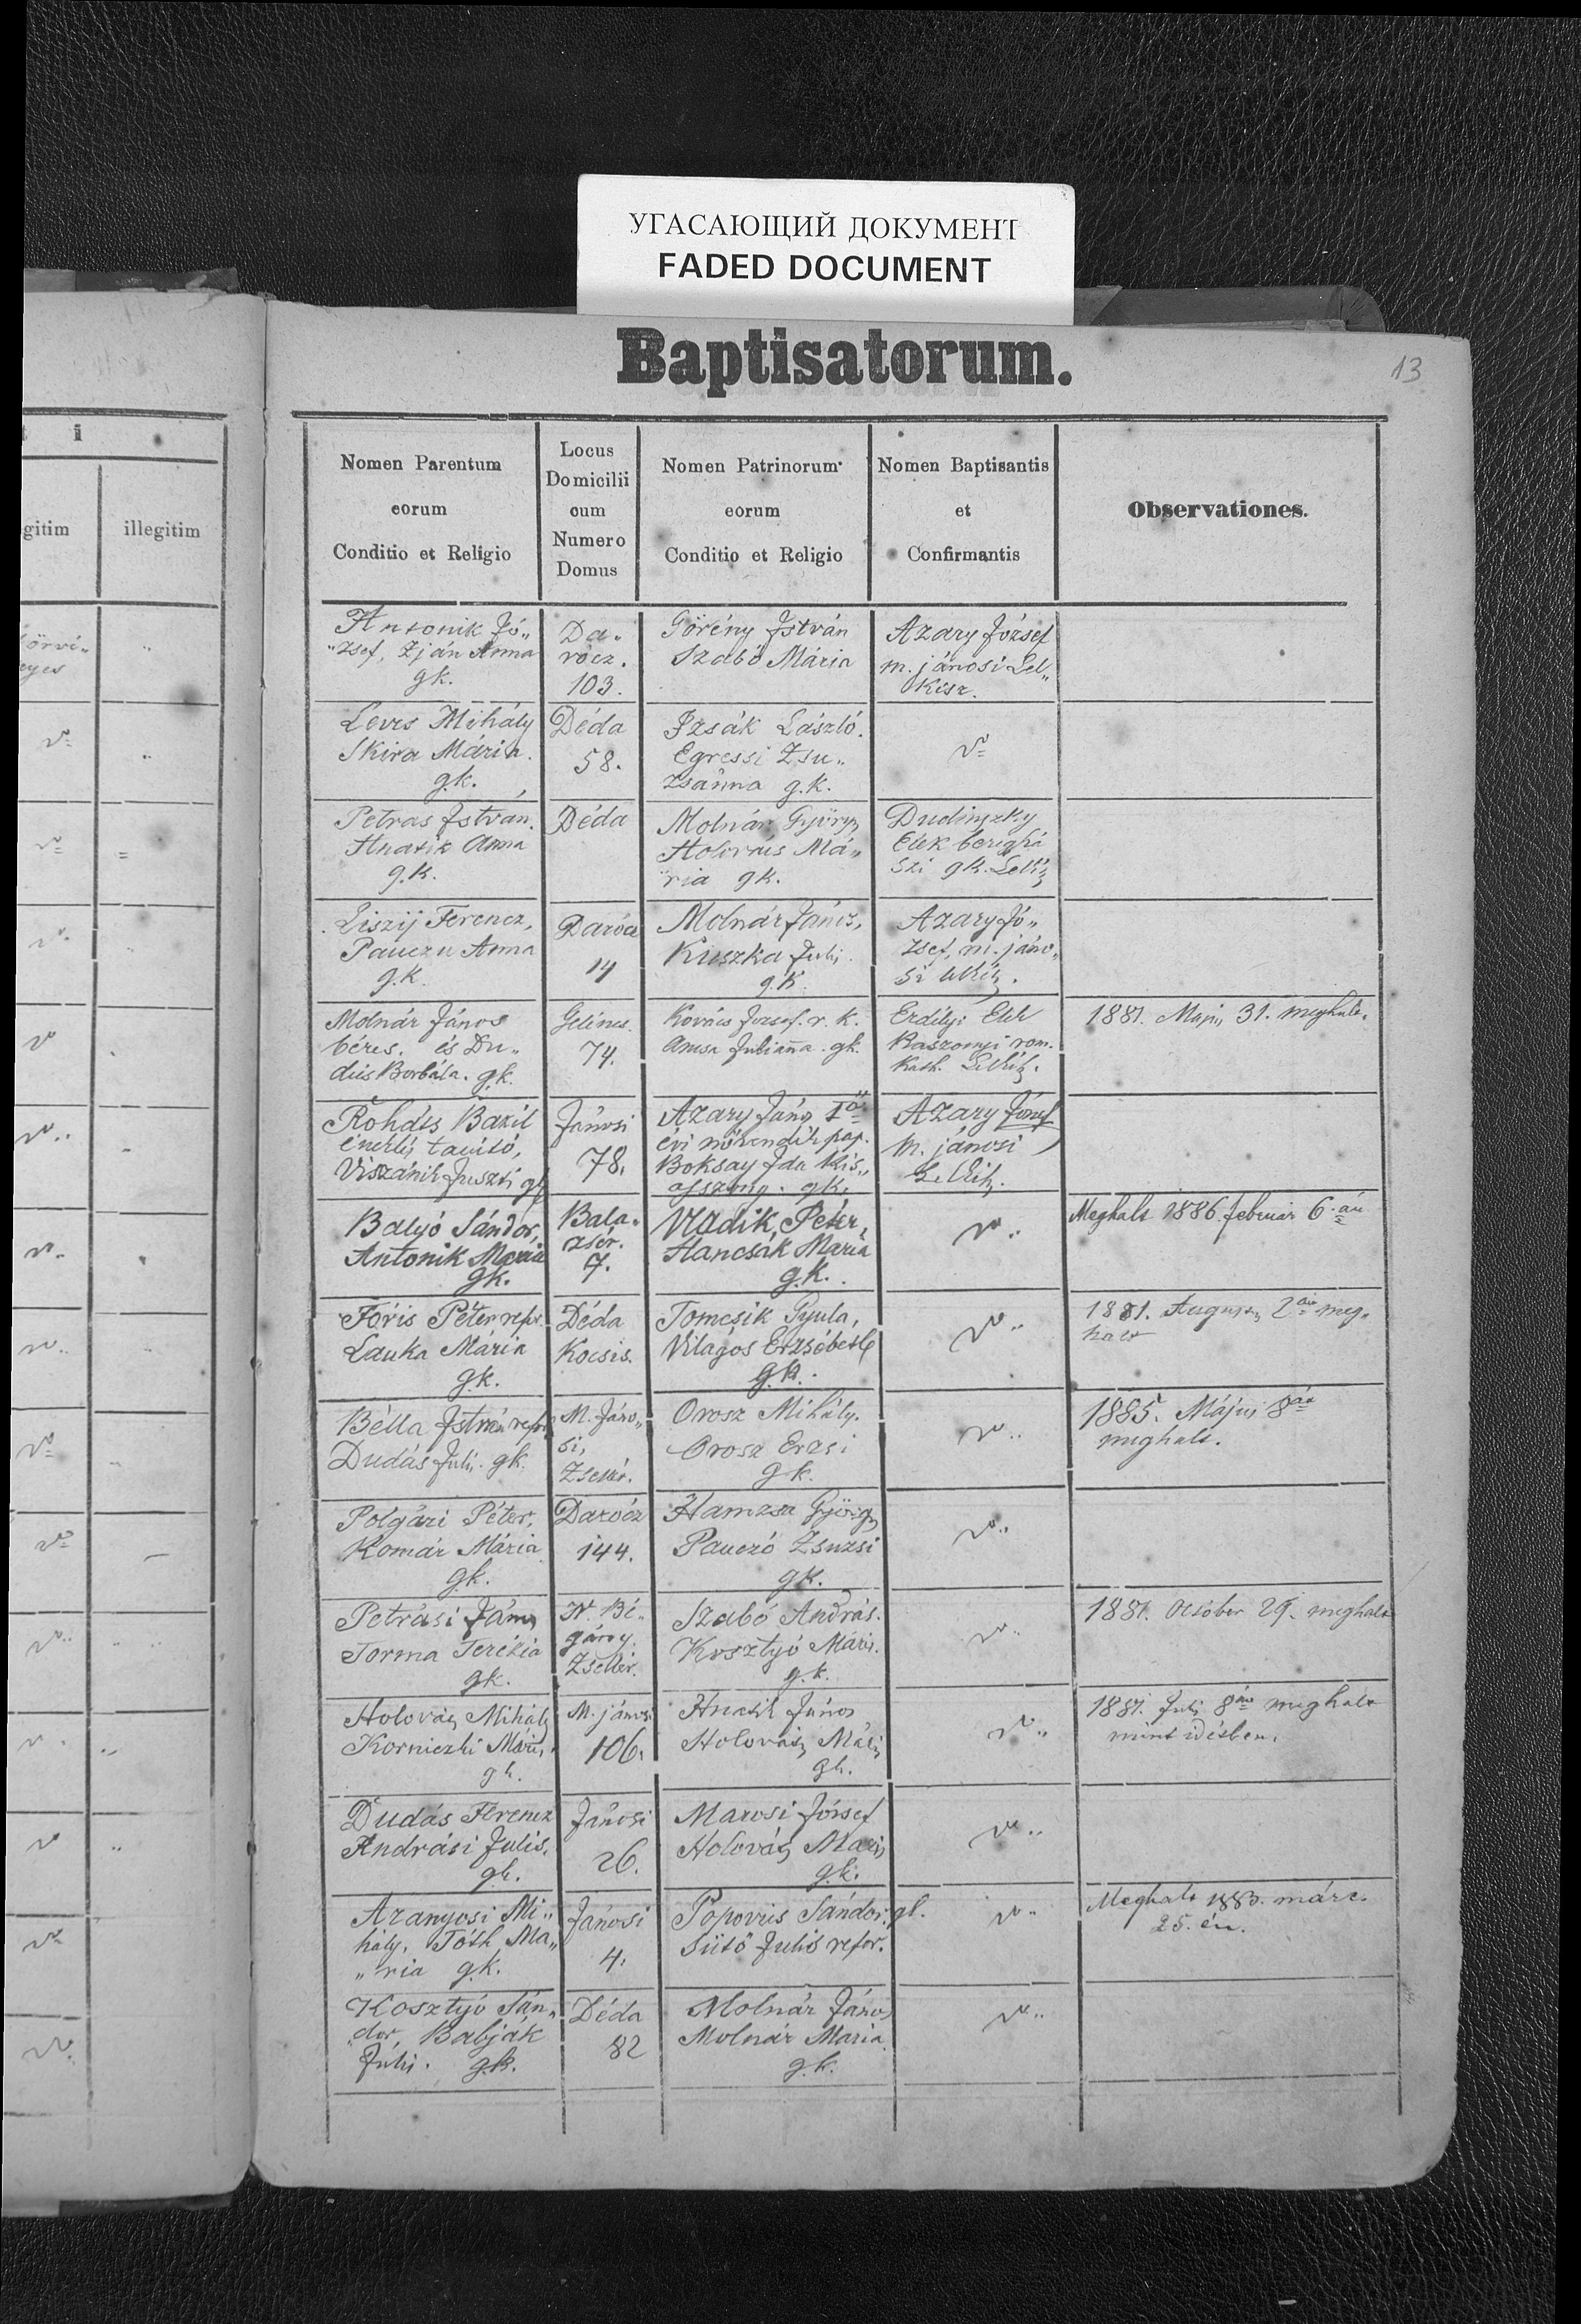 УГАСАЮЩИЙ ДОКУМЕНТ
FADED DOCUMENT
Baptisatorum.
13
i
gitim
illegitim
Nomen Parentum
eorum
Conditio et Religio
Locus
Domicilii
cum
Numero
Domus
Nomen Patrinorum
eorum
Conditio et Religio
Nomen Baptisantis
et
Confirmantis
Observationes.
Antonik Jó„
„zsef, Zján Anna
gk.
Da.
rócz.
103.
Görény István
Szabó Mária
Azary József
m. jánosi Lel„
kész.
Leves Mihály
Skira Mária.
g.k.
Déda
58.
Izsák László.
Egressi Zsu„
zsánna g.k.
Petras István.
Hnatik Anna
g.k.
Déda
Molnár György
Holovács Má„
„ria gk.
Dudinszky
Elek
szi gk.
Liszij Ferencz,
Pauczu Anna
g.k.
Darócz
14
Molnár János,
Kuszka Juli.
g.k.
Azary Jó„
zsef, m. jáno„
si
Molnár János
béres. és Du„
dás Borbála. gk.
Gelénes.
74.
Kovács József. r. k.
Julianna. gk.
Erdélyi Elek
Kaszonyi rom.
Kath.
1881. Maj. 31. meghalt.
Rohács Bazil
éneklő tanító,
Viszánik Juszti gk
Jánosi
78.
Azary János I ő
évi növendék pap.
Boksay Ida kis„
asszony. gk.
Azary József
m. jánosi
Balyó Sándor,
Antonik Maria
gk.
Bala„
zsér.
7.
Vladik Péter,
Hancsák Maria
g.k.
Meghalt 1886. februar 6.án
Fóris Péter refor.
Lauka Mária
gk.
Déda
Kocsis.
Tomcsik Gyula,
Világos Erzsébeth
g.k.
1881. August. 2án meg„
halt
Bélla István refor.
Dudás Juli. gk.
M. Jáno„
si,
Zsellér.
Orosz Mihály.
Orosz Erzsi
gk.
1885. Május 8án
meghalt.
Polgári Péter,
Komár Mária
gk.
Darócz
144.
Hamzsa György
Pauczó Zsuzsi
gk.
Petrási János
Torma Terézia
gk.
N. Bé„
gány.
Zsellér.
Szabó András.
Kosztyó Máris.
g.k.
1881. October 29. meghalt
Holovács Mihály
Korniczki Máris,
gk.
M. jánosi
106.
Hnatik János
Holovács Máris
gk.
1881. Juli 8án meghalt
Dudás Ferencz
Andrási Julis,
gk.
Jánosi
26.
Marosi József
Holovács Maris
gk.
Aranyosi Mi„
hály. Tóth Ma„
„ria gk.
Jánosi
4.
Popovics Sándor, gk.
Sütő Julis refor.
Meghalt 1880. márc.
25.én.
Kosztyó Sán„
„dor, Babják
Juli. gk.
Déda
82
Molnár János
Molnár Maria
g.k.